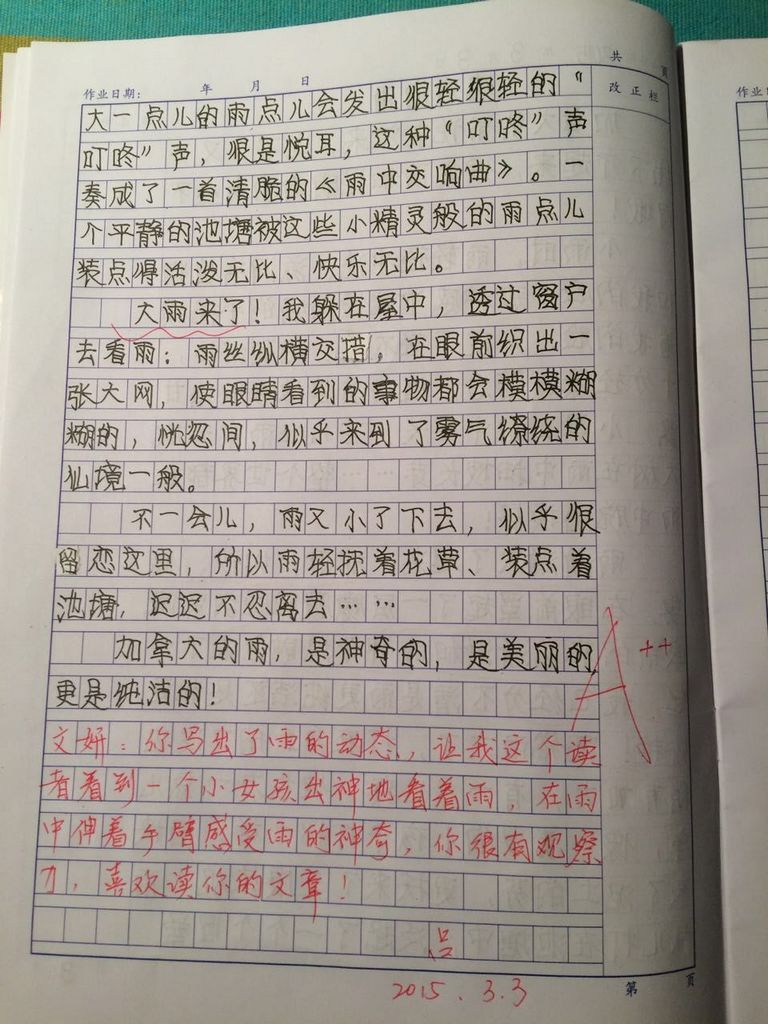 共 页
作业日期： 年 月 日
改正栏
作业
大一点儿的雨点儿会发出很轻很轻的“
叮咚”声，很是悦耳，这种“叮咚”声
奏成了一首清脆的《雨中交响曲》。一
个平静的池塘被这些小精灵般的雨点儿
装点得活泼无比、快乐无比。
大雨来了！我躲在屋中，透过窗户
去看雨：雨丝纵横交措，在眼前织出一
张大网，使眼睛看到的事物都会模模糊
糊的，恍忽间，似乎来到了雾气缭绕的
仙境一般。
不一会儿，雨又小了下去，似乎很
留恋这里，所以雨轻抚着花草、装点着
池塘，迟迟不忍离去……
加拿大的雨，是神奇的，是美丽的，
更是纯洁的！
A++
文妍：你写出了雨的动态，让我这个读
者看到一个小女孩出神地看着雨，在雨
中伸着手臂感受雨的神奇，你很有观察
力，喜欢读你的文章！
吕
2015.3.3
第 页